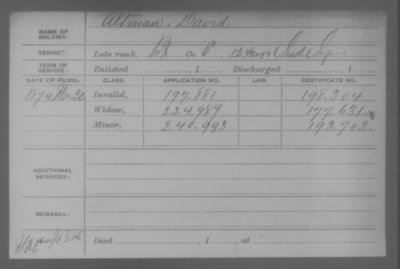 NAME OF SOLDIER: Altman, David
SERVICE: Late rank, Co. Ind. Inf.
TERM OF SERVICE: Enlisted , 1 Discharged , 1
DATE OF FILING. CLASS. APPLICATION NO. LAW. CERTIFICATE NO.
1874 Invalid, 197.881 198.304
Widow, 224.989 177.631
Minor, 240.993 193.703
ADDITIONAL SERVICES:
REMARKS:
Died , 1 , at